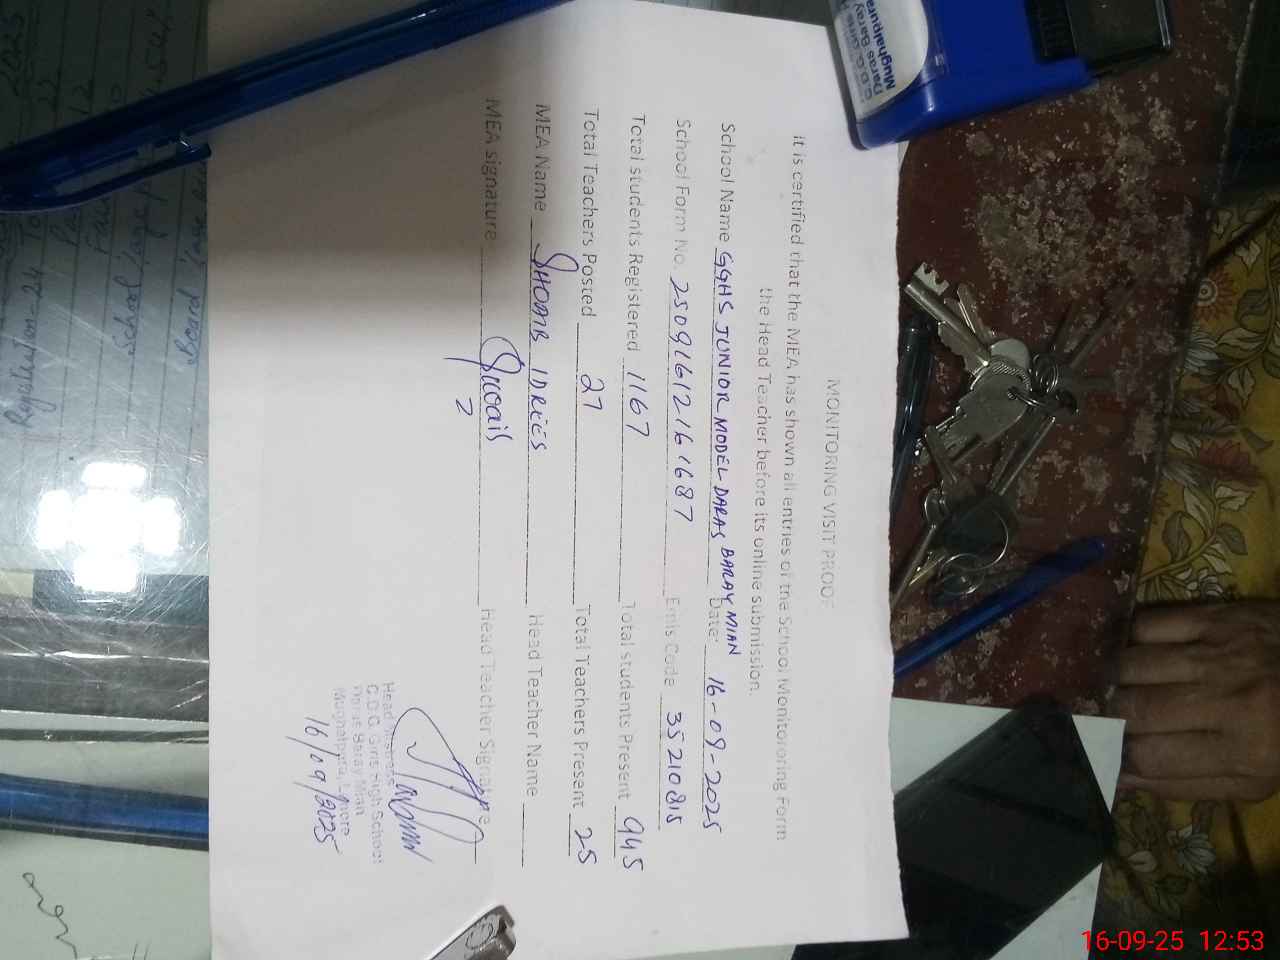 MONITORING VISIT PROOF
It is certified that the MEA has shown all entries of the School Monitororing Form
the Head Teacher before its online submission.
School Name GGHS JUNIOR MODEL DARAS BARAY MIAN Date 16-09-2025
School Form No. 25091612161687 Emis Code 35210815
Total students Registered 1167 Total students Present 945
Total Teachers Posted 27 Total Teachers Present 25
MEA Name SHOAIB IDREES Head Teacher Name
MEA signature Head Teacher Signature
Head Mistress
G.D.G. Girls High School
Daras Baray Mian
Mughalpura, Lahore
16/09/2025
Daras Baray
Mughalpura
2025
Registeration-24
16-09-25 12:53